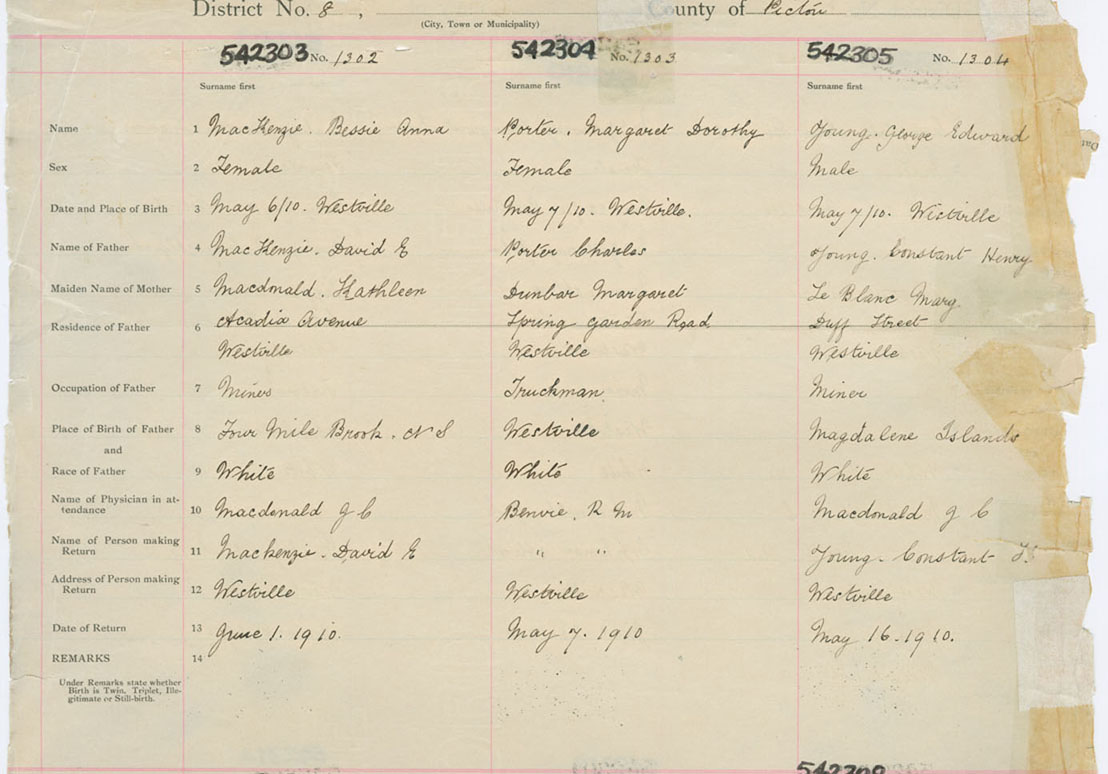 District No. 8, County of Pictou
(City, Town or Municipality)
542303 No. 1302 542304 No. 1303 542305 No. 1304
Surname first Surname first Surname first
Name 1 MacKenzie. Bessie Anna Porter. Margaret Dorothy Young. George Edward
Sex 2 Female Female Male
Date and Place of Birth 3 May 6/10. Westville May 7/10. Westville. May 7/10. Westville
Name of Father 4 MacKenzie. David E Porter Charles Young. Constant Henry
Maiden Name of Mother 5 Macdonald. Kathleen Dunbar Margaret Le Blanc Marg.
Residence of Father 6 Acadia Avenue Spring Garden Road Duff Street
Westville Westville Westville
Occupation of Father 7 Miner Truckman Miner
Place of Birth of Father 8 Four Mile Brook. N S Westville Magdalene Islands
and
Race of Father 9 White White White
Name of Physician in at-
tendance 10 Macdonald J C Benvie. R M Macdonald J C
Name of Person making
Return 11 Mackenzie. David E " " Young. Constant
Address of Person making
Return 12 Westville Westville Westville
Date of Return 13 June 1. 1910. May 7. 1910 May 16-1910.
REMARKS 14
Under Remarks state whether
Birth is Twin, Triplet, Ille-
gitimate or Still-birth.